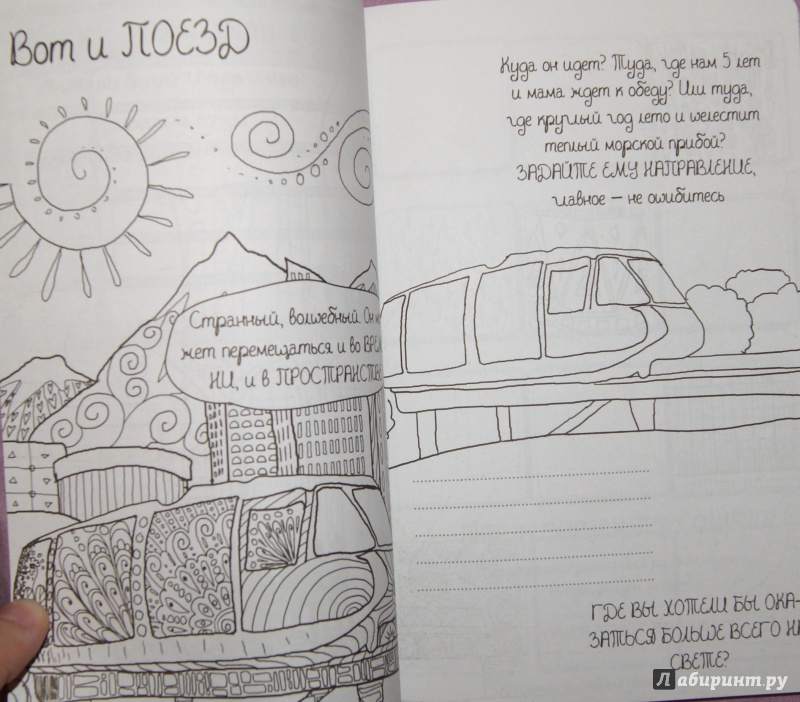 Вот и ПОЕЗД
Странный, волшебный. Он мо
жет перемещаться и во ВРЕМ
НИ, и в ПРОСТРАНСТВ
Куда он идет? Туда, где нам 5 лет
и мама ждет к обеду? Или туда,
где круглый год лето и шелестит
теплый морской прибой?
ЗАДАЙТЕ ЕМУ НАПРАВЛЕНИЕ,
главное – не ошибитесь
ГДЕ ВЫ ХОТЕЛИ БЫ ОКА-
ЗАТЬСЯ БОЛЬШЕ ВСЕГО НА
СВЕТЕ?
Лабиринт.ру